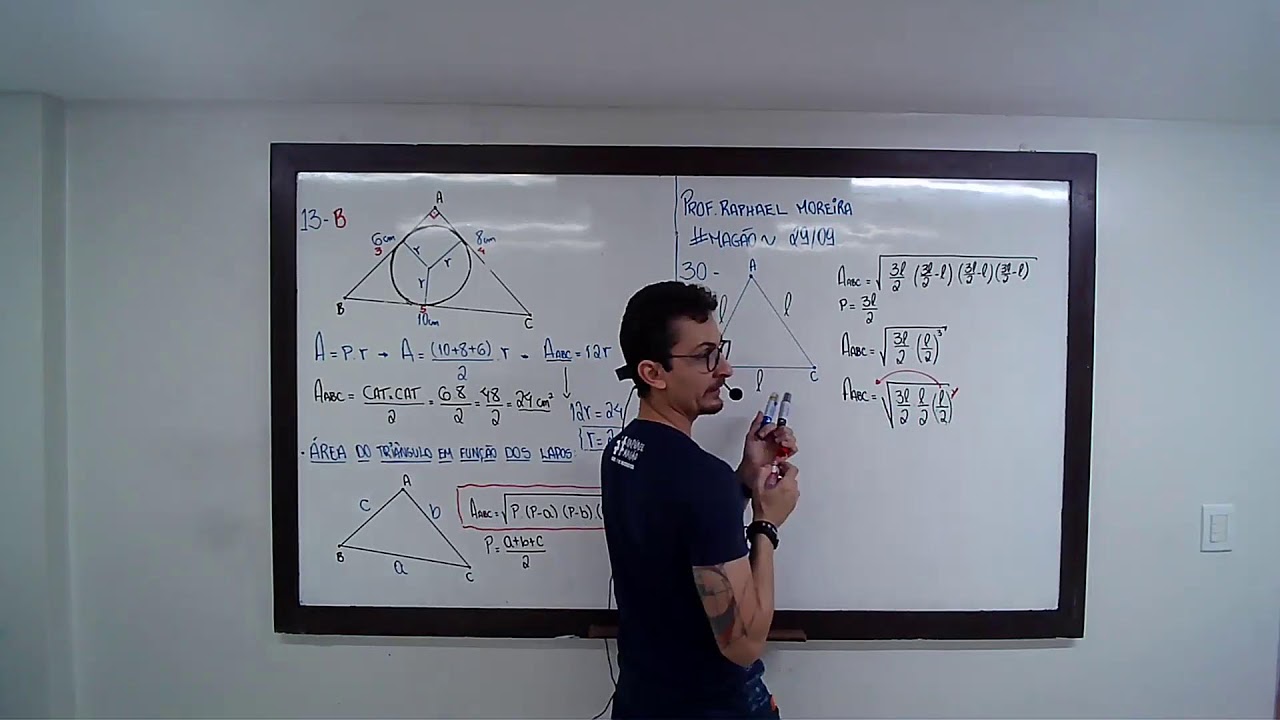 13-B
A
6cm
3
8cm
4
r
r
r
B
5
10cm
C
A = P.r → A = (10+8+6)/2 . r → AABC = 12r
AABC = CAT.CAT/2 = 6.8/2 = 48/2 = 24 cm²
12r = 24
r = 2
• ÁREA DO TRIÂNGULO EM FUNÇÃO DOS LADOS:
A
c
b
B
a
C
AABC = √P (P-a) (P-b) (
P = a+b+c/2
PROF. RAPHAEL MOREIRA
#MAGÃO~ 29/09
30 -
A
l
l
l
C
AABC = √3l/2 (3l/2-l) (3l/2-l) (3l/2-l)
P = 3l/2
AABC = √3l/2 (l/2)³
AABC = √3l/2 l/2 (l/2)²